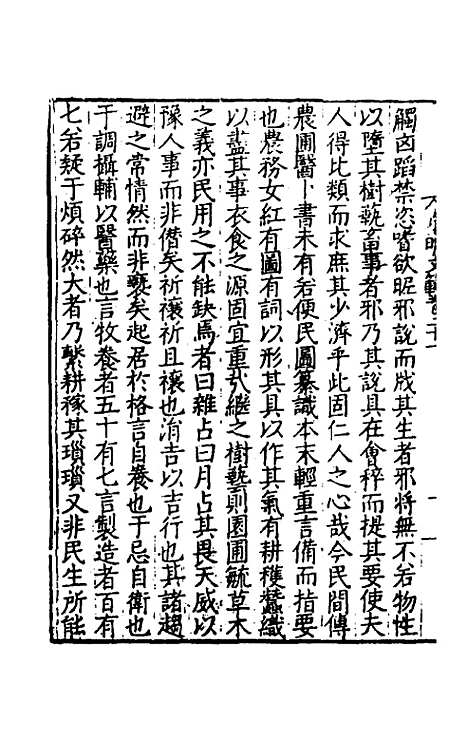 觸凶蹈禁恣嗜欲昵邪說而戕其生者邪將無不若物性
以墮其樹蓺畜事者邪乃其說具在會稡而提其要使夫
人得比類而求庶其少濟乎此固仁人之心哉今民間傳
農圃醫卜書未有若便民圖纂識本末輕重言備而指要
也農務女紅有圖有詞以形其具以作其氣有耕穫蠶織
以盡其事衣食之源固宜重哉繼之樹藝則園圃毓草木
之義亦民用之不能缺焉者曰雜占曰月占其畏天威以
豫人事而非僭矣祈禳祈且禳也涓吉以吉行也其諸趨
避之常情然而非褻矣起居於格言自養也于忌自衛也
于調攝輔以醫藥也言牧養者五十有七言製造者百有
七若疑于煩碎然大者乃繫耕稼其瑣瑣又非民生所能